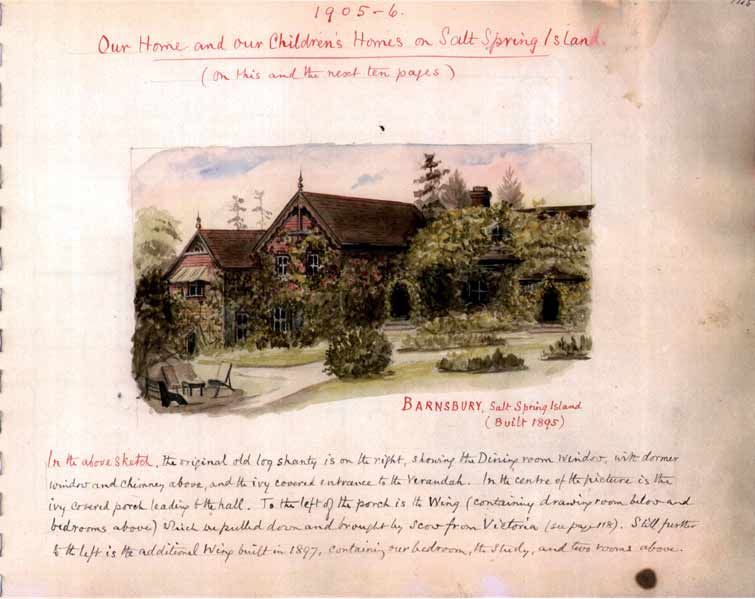 1905-6.
Our Home and our Children's Homes on Salt Spring Island.
(on this and the next ten pages)
BARNSBURY, Salt Spring Island
(Built 1895)
In the above sketch, the original old log shanty is on the right, showing the Dining room window, with dormer
window and chimney above, and the ivy covered entrance to the Verandah. In the centre of the picture is the
ivy covered porch leading to the hall. To the left of the porch is the Wing (containing drawing room below and
bedrooms above) which we pulled down and brought by scow from Victoria (see page 118). Still further
to the left is the additional Wing built in 1897, containing our bedroom, the study, and two rooms above.